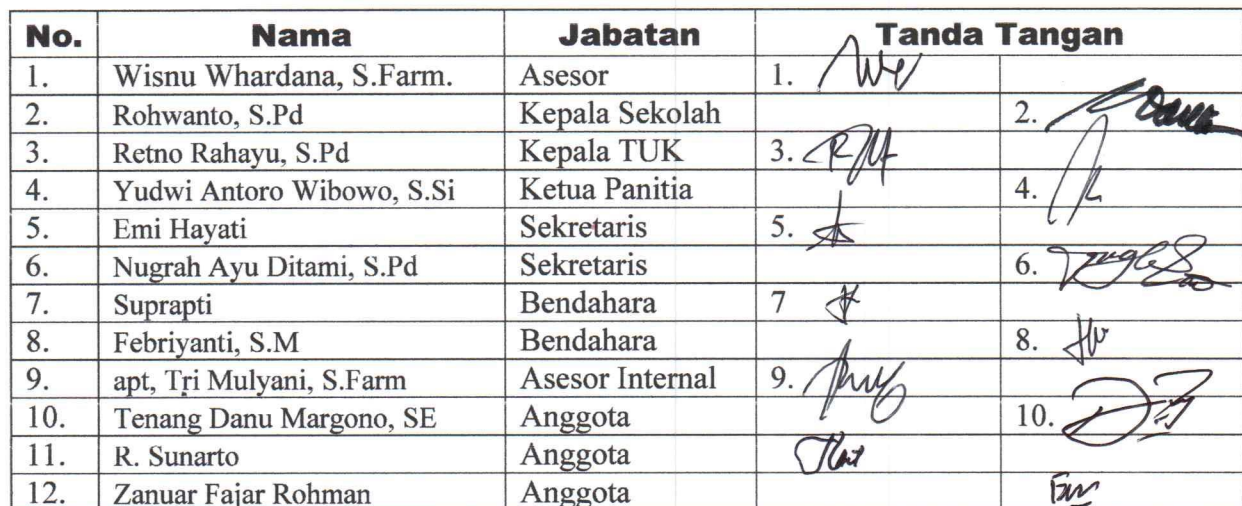 No. Nama Jabatan Tanda Tangan
1. Wisnu Whardana, S.Farm. Asesor 1.
2. Rohwanto, S.Pd Kepala Sekolah 2.
3. Retno Rahayu, S.Pd Kepala TUK 3.
4. Yudwi Antoro Wibowo, S.Si Ketua Panitia 4.
5. Emi Hayati Sekretaris 5.
6. Nugrah Ayu Ditami, S.Pd Sekretaris 6.
7. Suprapti Bendahara 7
8. Febriyanti, S.M Bendahara 8.
9. apt, Tri Mulyani, S.Farm Asesor Internal 9.
10. Tenang Danu Margono, SE Anggota 10.
11. R. Sunarto Anggota
12. Zanuar Fajar Rohman Anggota